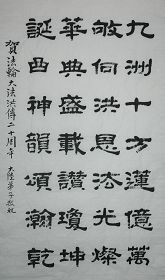 九洲十方億萬
敬洪恩法光燦
華典盛載讚瓊坤
誕酉神韻頌瀚乾
賀法輪大法洪傳二十周年
大陸弟子敬祝